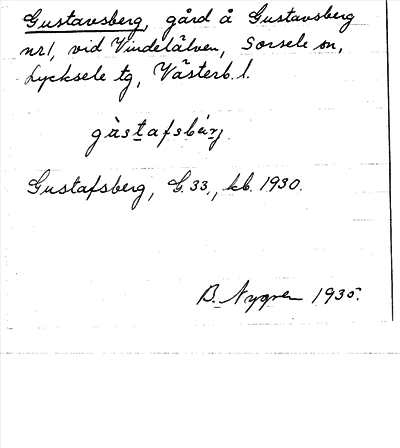 Gustavsberg, gård å Gustavsberg
nr 1, vid Vindelälven, Sorsele sn,
Lycksele tg, Västerb. l.
gàstafsbárj
Gustafsberg, G. 33, kb. 1930.
B. Nygren 1935.